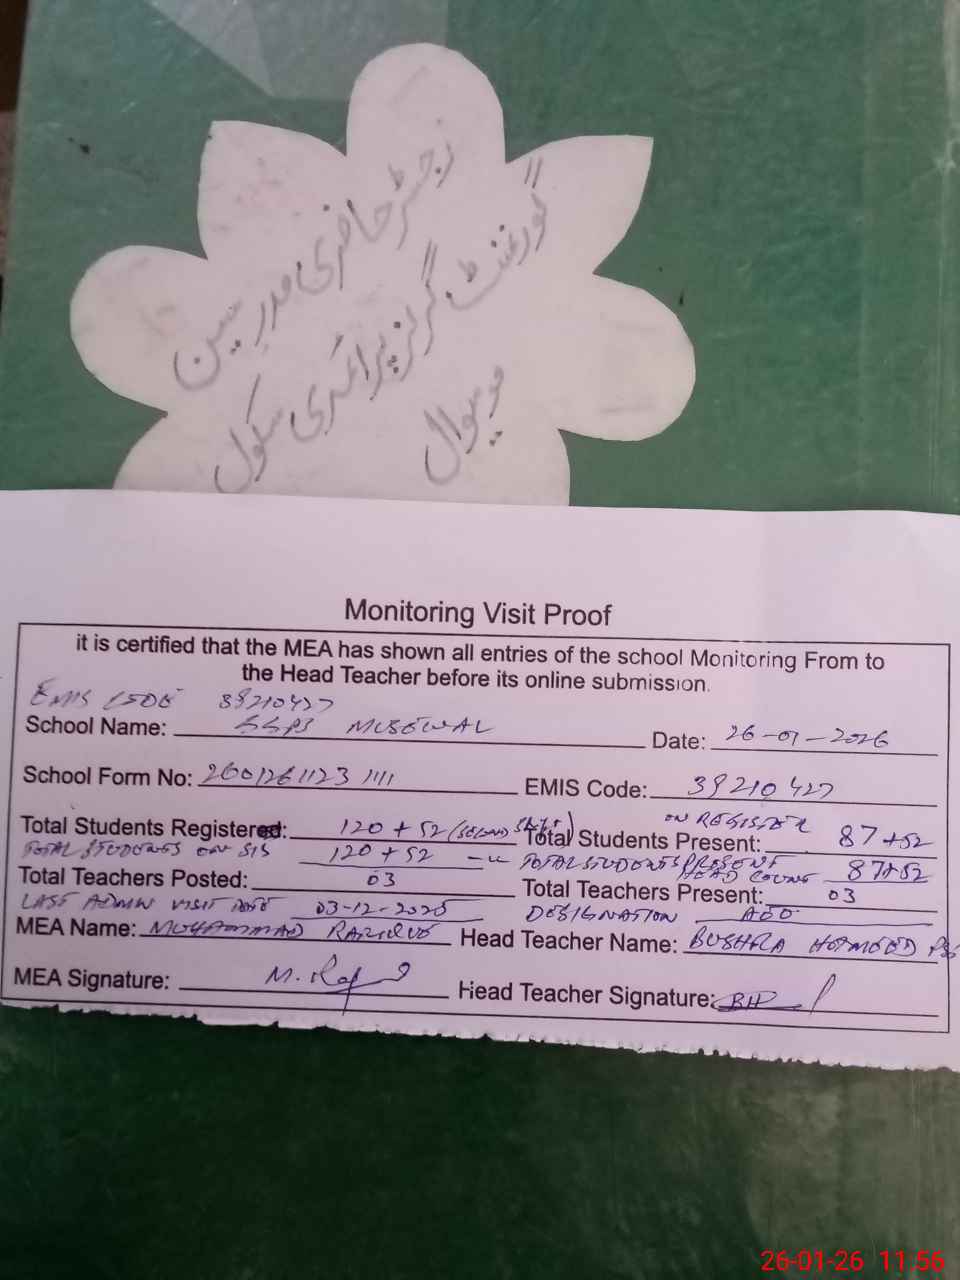 رجسٹر حاضری مدرسین
گورنمنٹ گرلز پرائمری سکول
موسیوال
Monitoring Visit Proof
it is certified that the MEA has shown all entries of the school Monitoring From to
the Head Teacher before its online submission.
EMIS CODE 39210427
School Name: GGPS MUSEWAL Date: 26-01-2026
School Form No: 2601261123 1111 EMIS Code: 39210427
ON REGISTER
Total Students Registered: 120 + 52 (SECOND SHIFT) Total Students Present: 87+52
TOTAL STUDENTS ON SIS 120 + 52 TOTAL STUDENTS PRESENT HEAD COUNT 87+52
Total Teachers Posted: 03 Total Teachers Present: 03
LAST ADMN VISIT DATE 03-12-2025 DESIGNATION AEO
MEA Name: MUHAMMAD Head Teacher Name: BUSHRA
MEA Signature: Head Teacher Signature:
26-01-26 11:56